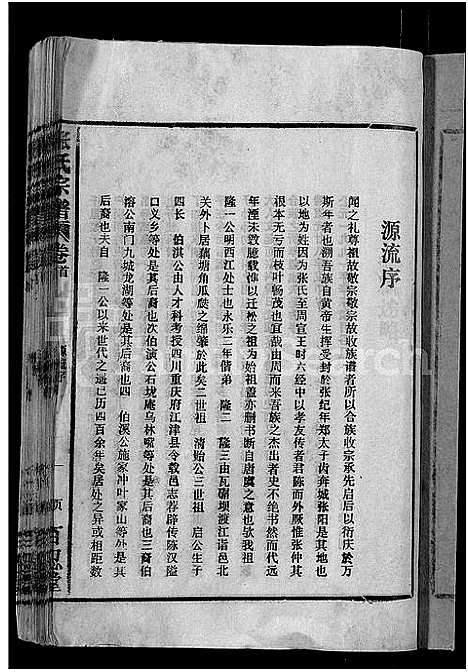 源流序
闻之礼尊祖故敬宗敬宗故收族谱者所以合族收宗承先启后以衍庆於万
斯年者也溯吾族自黄帝生挥受封於张纪年郑太子茜奔城张阳是其地也
以地为姓因为张氏至周宣王时六经中以孝友传者君陈而外厥惟张仲其
根本无亏而枝叶畅茂也宜哉由周而来吾族之杰出者史不绝书然而代远
年湮未敢臆载惟以迁松之祖为始祖盖亦删书断自唐虞之意也猷我祖
隆一公明西江处士也永乐三年偕弟 隆二 隆三由瓦砌坝渡江诣邑北
关外卜居藕塘角瓜瓞之绵肇於此矣二世祖 清始公三世祖 启公生子
四长 伯淇公由人才科考授四川重庆府江津县令载邑志荐辟传陈汉隘
口义乡等处是其后裔也次伯演公石墘庵乌林嘴等处是其后裔也三裔伯
溶公南门九城龙湖等处是其后裔也四 伯溪公施家冲叶家山等处是其
后裔也夫自 隆一公以来世代之远已历四百余年矣居处之异或相距数
张氏宗谱 卷首
源流序
一
百忍堂